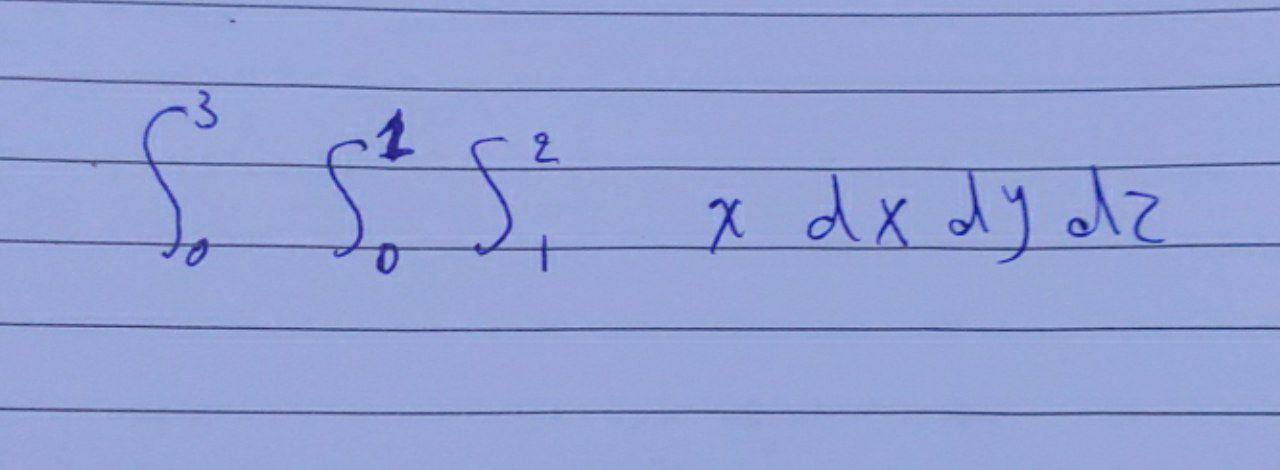 ∫₀³ ∫₀¹ ∫₁² x dx dy dz